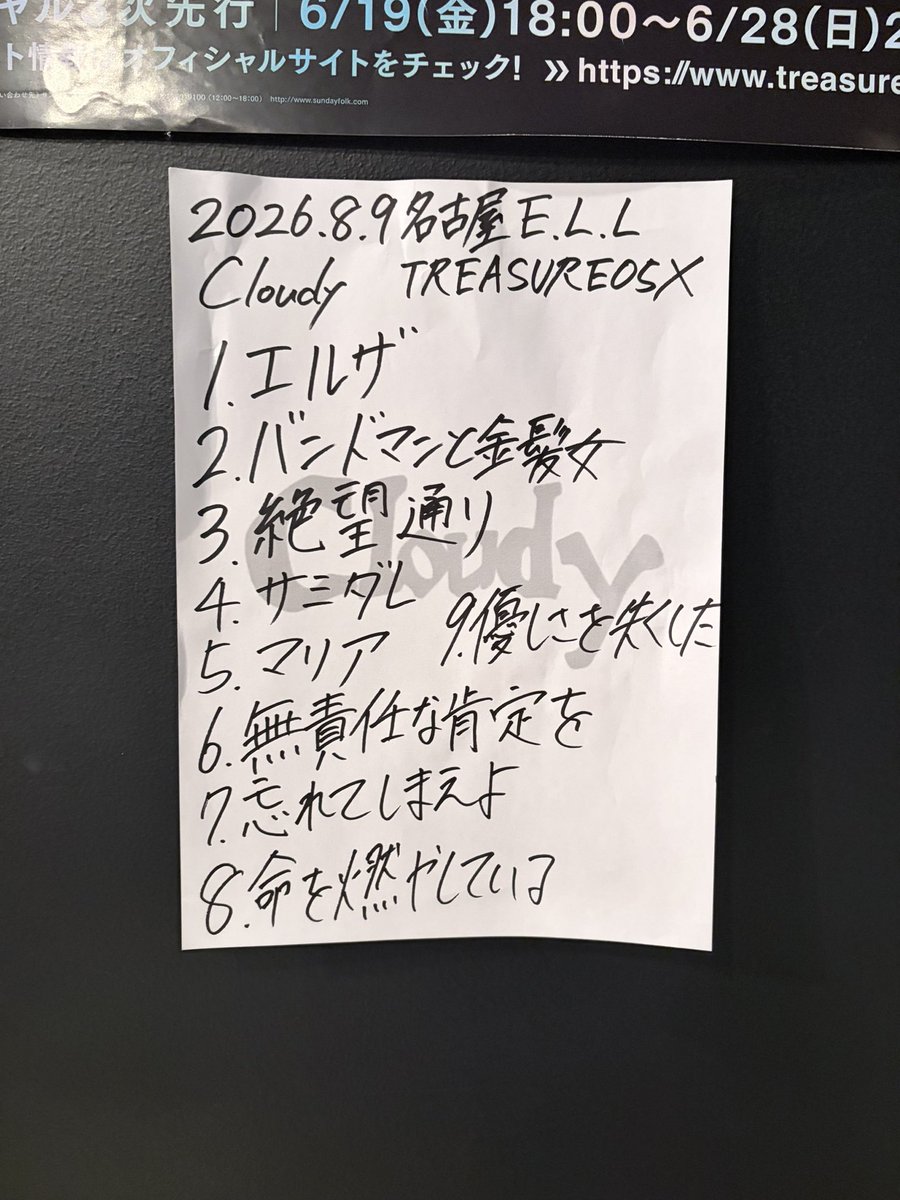 次先行 | 6/19(金)18:00〜6/28(日)2
オフィシャルサイトをチェック! >> https://www.treasure
(12:00〜18:00) http://www.sundayfolk.com
2026.8.9 名古屋 E.L.L
Cloudy TREASURE05X
1. エルザ
2. バンドマンと金髪女
3. 絶望通り
Cloudy
4. サミダレ
5. マリア 9.優しさを失くした
6. 無責任な肯定を
7. 忘れてしまえよ
8. 命を燃やしている